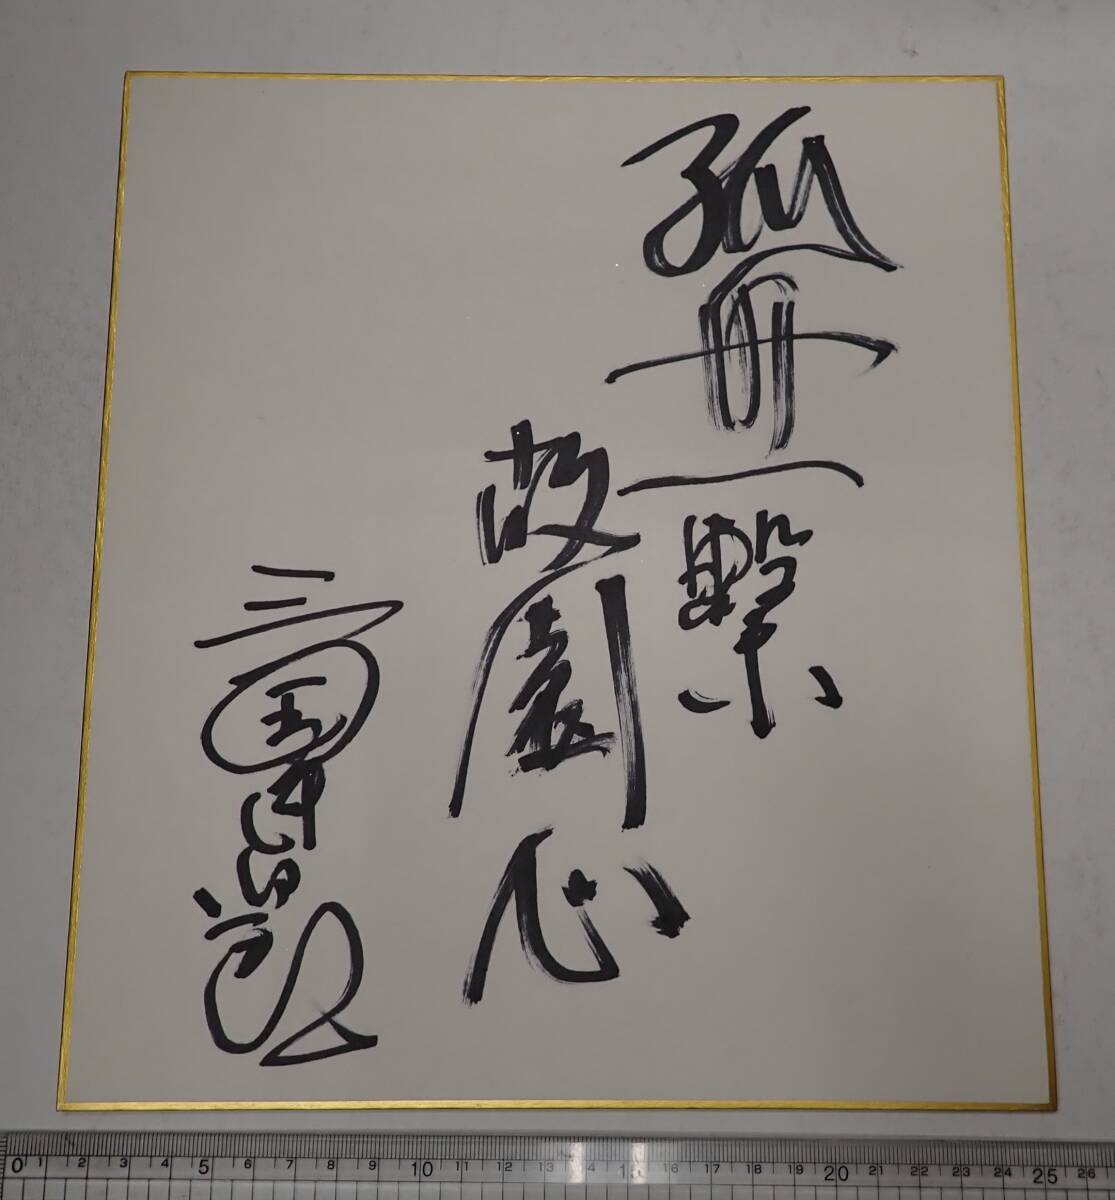 孤舟一繋
故園心
三國連太郎
0 1 2 3 4 5 6 7 8 9 10 11 12 13 14 15 16 17 18 19 20 21 22 23 24 25 26